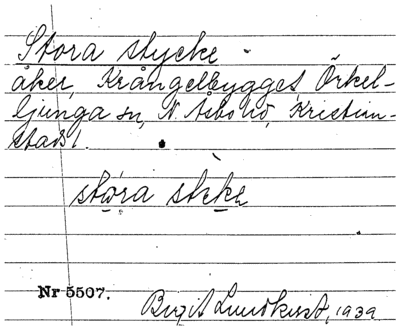 Stora stycke
åker, Krångelbygget, Örkel-
ljunga sn, N. Åsbo hd, Kristian-
stads l.
stora stẹkẹ
Nr 5507.
Birgit Lundkvist, 1939